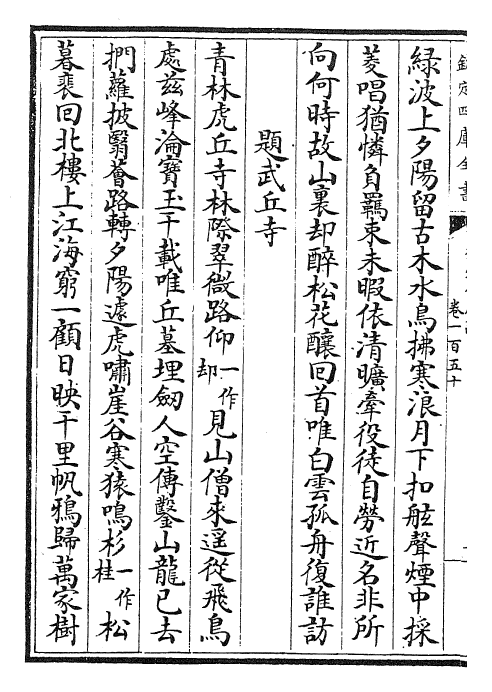 欽定四庫全書
卷一百五十
緑波上夕陽留古木水鳥拂寒浪月下扣舷聲煙中採
菱唱猶憐負羈束未暇依清曠牽役徒自勞近名非所
向何時故山裏却醉松花釀回首唯白雲孤舟復誰訪
題武丘寺
青林虎丘寺林際翠微路仰一作却見山僧來遥從飛鳥
處兹峰淪寶玉千載唯丘墓埋劒人空傳鑿山龍已去
捫蘿披翳薈路轉夕陽遽虎嘯崖谷寒猿鳴杉一作桂松
暮裵回北樓上江海窮一顧日映千里帆鴉歸萬家樹